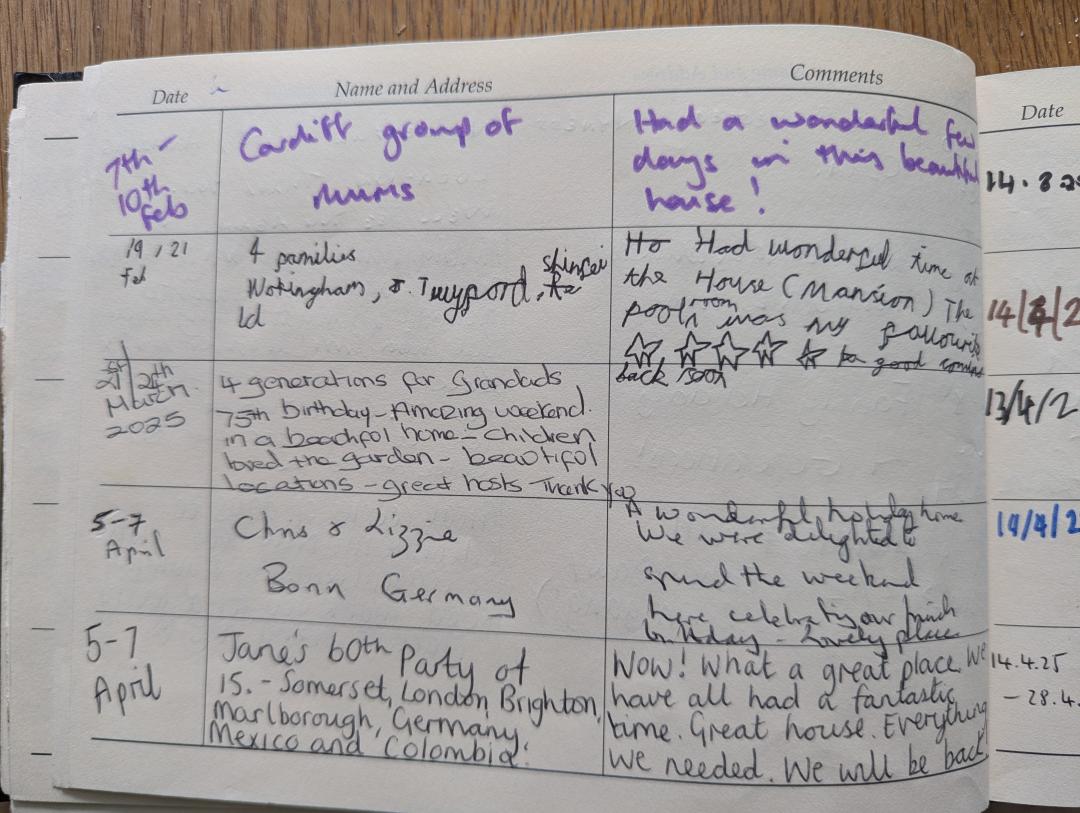 Date Name and Address Comments
7th - Cardiff group of Had a wonderful few
10th mums days in this beautiful
Feb house!
19 / 21 4 families Had wonderful time at
Feb Wotingham, & Twyford, the House (Mansion) The
pool room was my favourite
good
back soon
21st / 24th 4 generations for Grandads
March 75th birthday - Amazing weekend.
2025 in a beachfol home - Children
loved the garden - beautifol
locations - great hosts - Thank you
5-7 Chris & Lizzie A wonderful holiday home
April We were delighted to
Bonn Germany spend the weekend
here celebrating our
birthday - Lovely place
5-7 Jane's 60th Party of Wow! What a great place. We
April 15. - Somerset, London, Brighton, have all had a fantastic
Marlborough, Germany, time. Great house. Everything
Mexico and Colombia. we needed. We will be back.
Date
14/4/2
13/4/2
14/4/2
14.4.25
- 28.4.